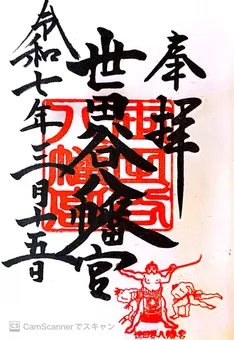 奉拝
世田谷八幡宮
令和七年三月十五日
世田谷八幡宮
世田谷八幡宮
CS CamScannerでスキャン